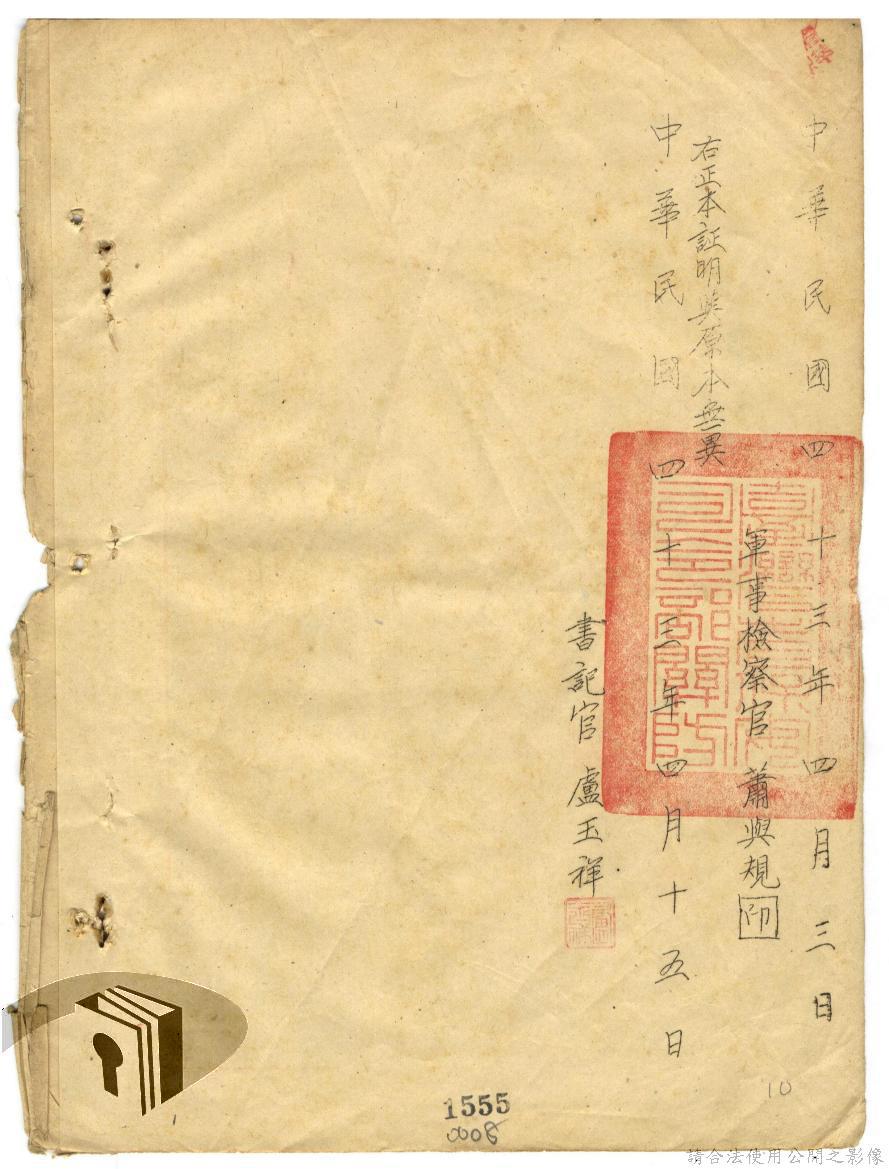 中華民國四十三年四月三日
軍事檢察官 蕭與規 印
右正本証明與原本無異
中華民國四十三年四月十五日
書記官 盧玉祥
10
1555
0008
請合法使用公開之影像